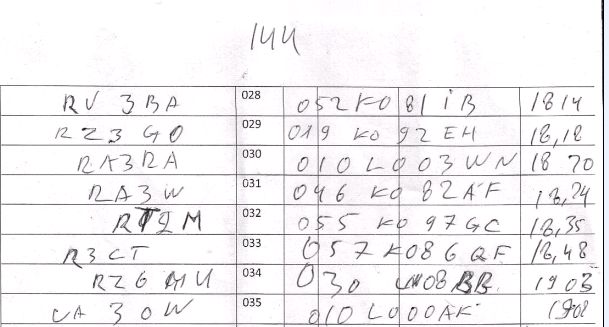 144
RV3BA 028 052 KO81IB 1814
RZ3GO 029 019 KO92EH 18,18
RA3RA 030 010 LO03WN 18 20
RA3W 031 046 KO82AF 18,24
032 055 KO97GC 18,35
R3CT 033 057 KO86QF 18,48
034 030 1903
UA3OW 035 010 LO00AK